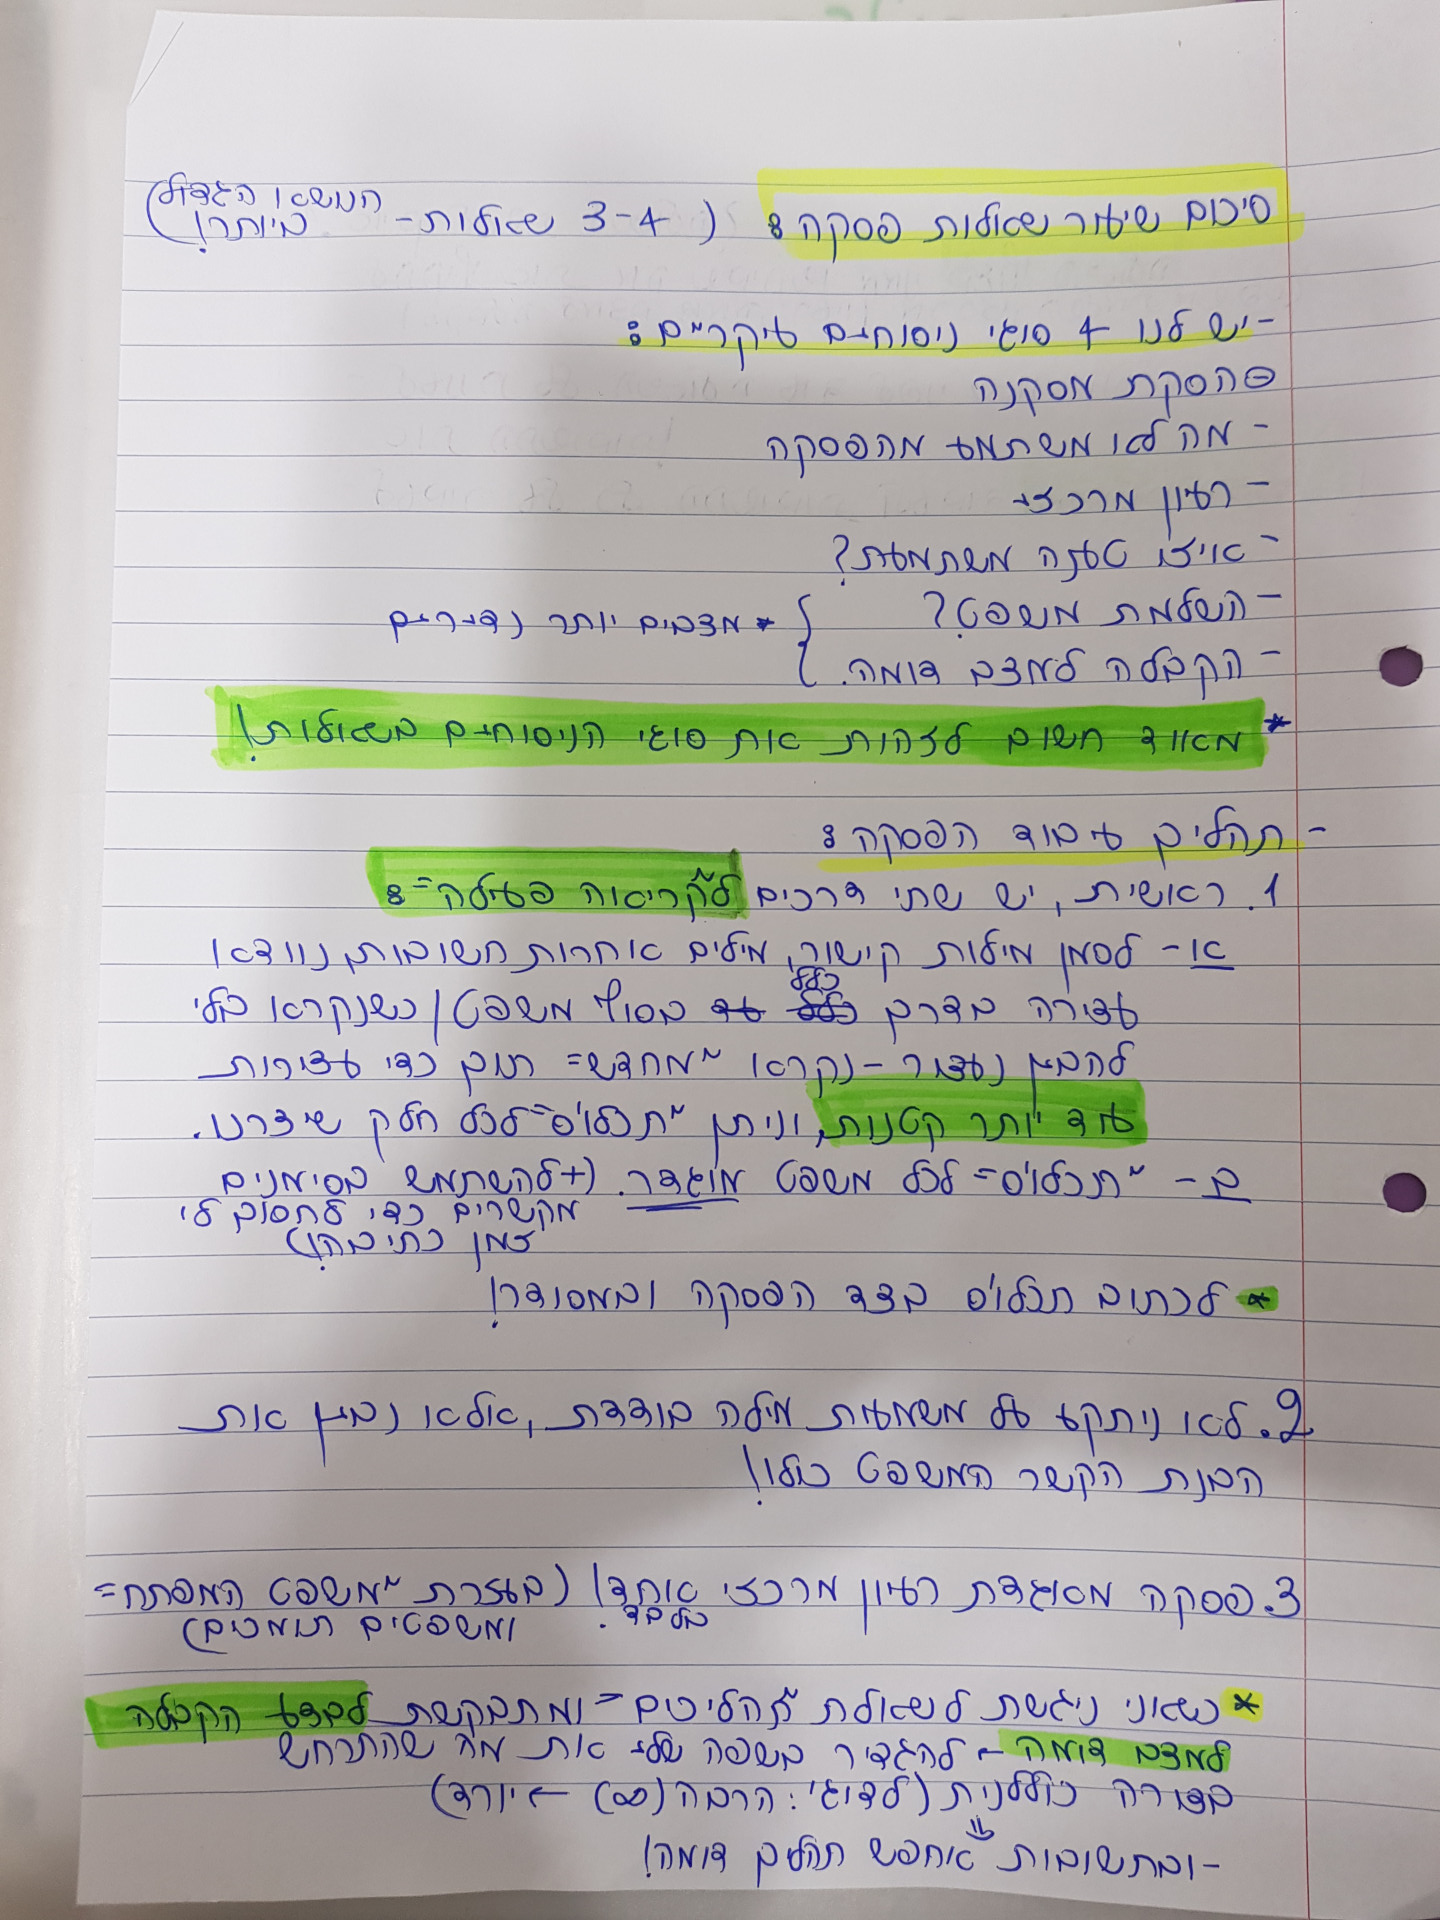 סיכום שיעור שאלות פסקה: (3-4 שאלות- הנושא הגדול
ביותר!)
-יש לנו 4 סוגי ניסוחים עיקריים:
הסקת מסקנה
- מה לא משתמע מהפסקה
- רעיון מרכזי
- איזו טענה משתמעת?
- השלמת משפט?
- הקבלה למצב דומה. } * מצבים יותר נדירים
* מאוד חשוב לזהות את סוגי הניסוחים בשאלות!
- תהליך עיבוד הפסקה:
1. ראשית, יש שתי דרכים ל"קריאה פעילה":
א- לסמן מילות קישור, מילים אחרות חשובות, נוודא
עצירה בדרך כלל בסוף משפט/כשנקרא בלי
להבין נעצור - נקרא "מחדש" תוך כדי עצירות
עוד יותר קטנות, וניתן "תכלו'ס" לכל חלק שיצרנו.
ב- "תכלו'ס" לכל משפט מוגדר. (+להשתמש בסימנים
מקשרים כדי לחסוך לי
זמן כתיבה!)
* לכתוב תכלו'ס בצד הפסקה ובמסודר!
2. לא ניתקע על משמעות מילה בודדת, אלא נבין את
הבנת הקשר המשפט כולו!
3. פסקה מאוגדת רעיון מרכזי אחד! (בעזרת "משפט המפתח"
בלבד. ומשפטים תומכים)
* כשאני ניגשת לשאלת "תהליכים" ומתבקשת לבצע הקבלה
למצב דומה ← להגדיר בשפה שלי את מה שהתרחש
בצורה כוללנית (לדוג': הרבה (∞) ← יורד)
-ובתשובות אחפש תהליך דומה!